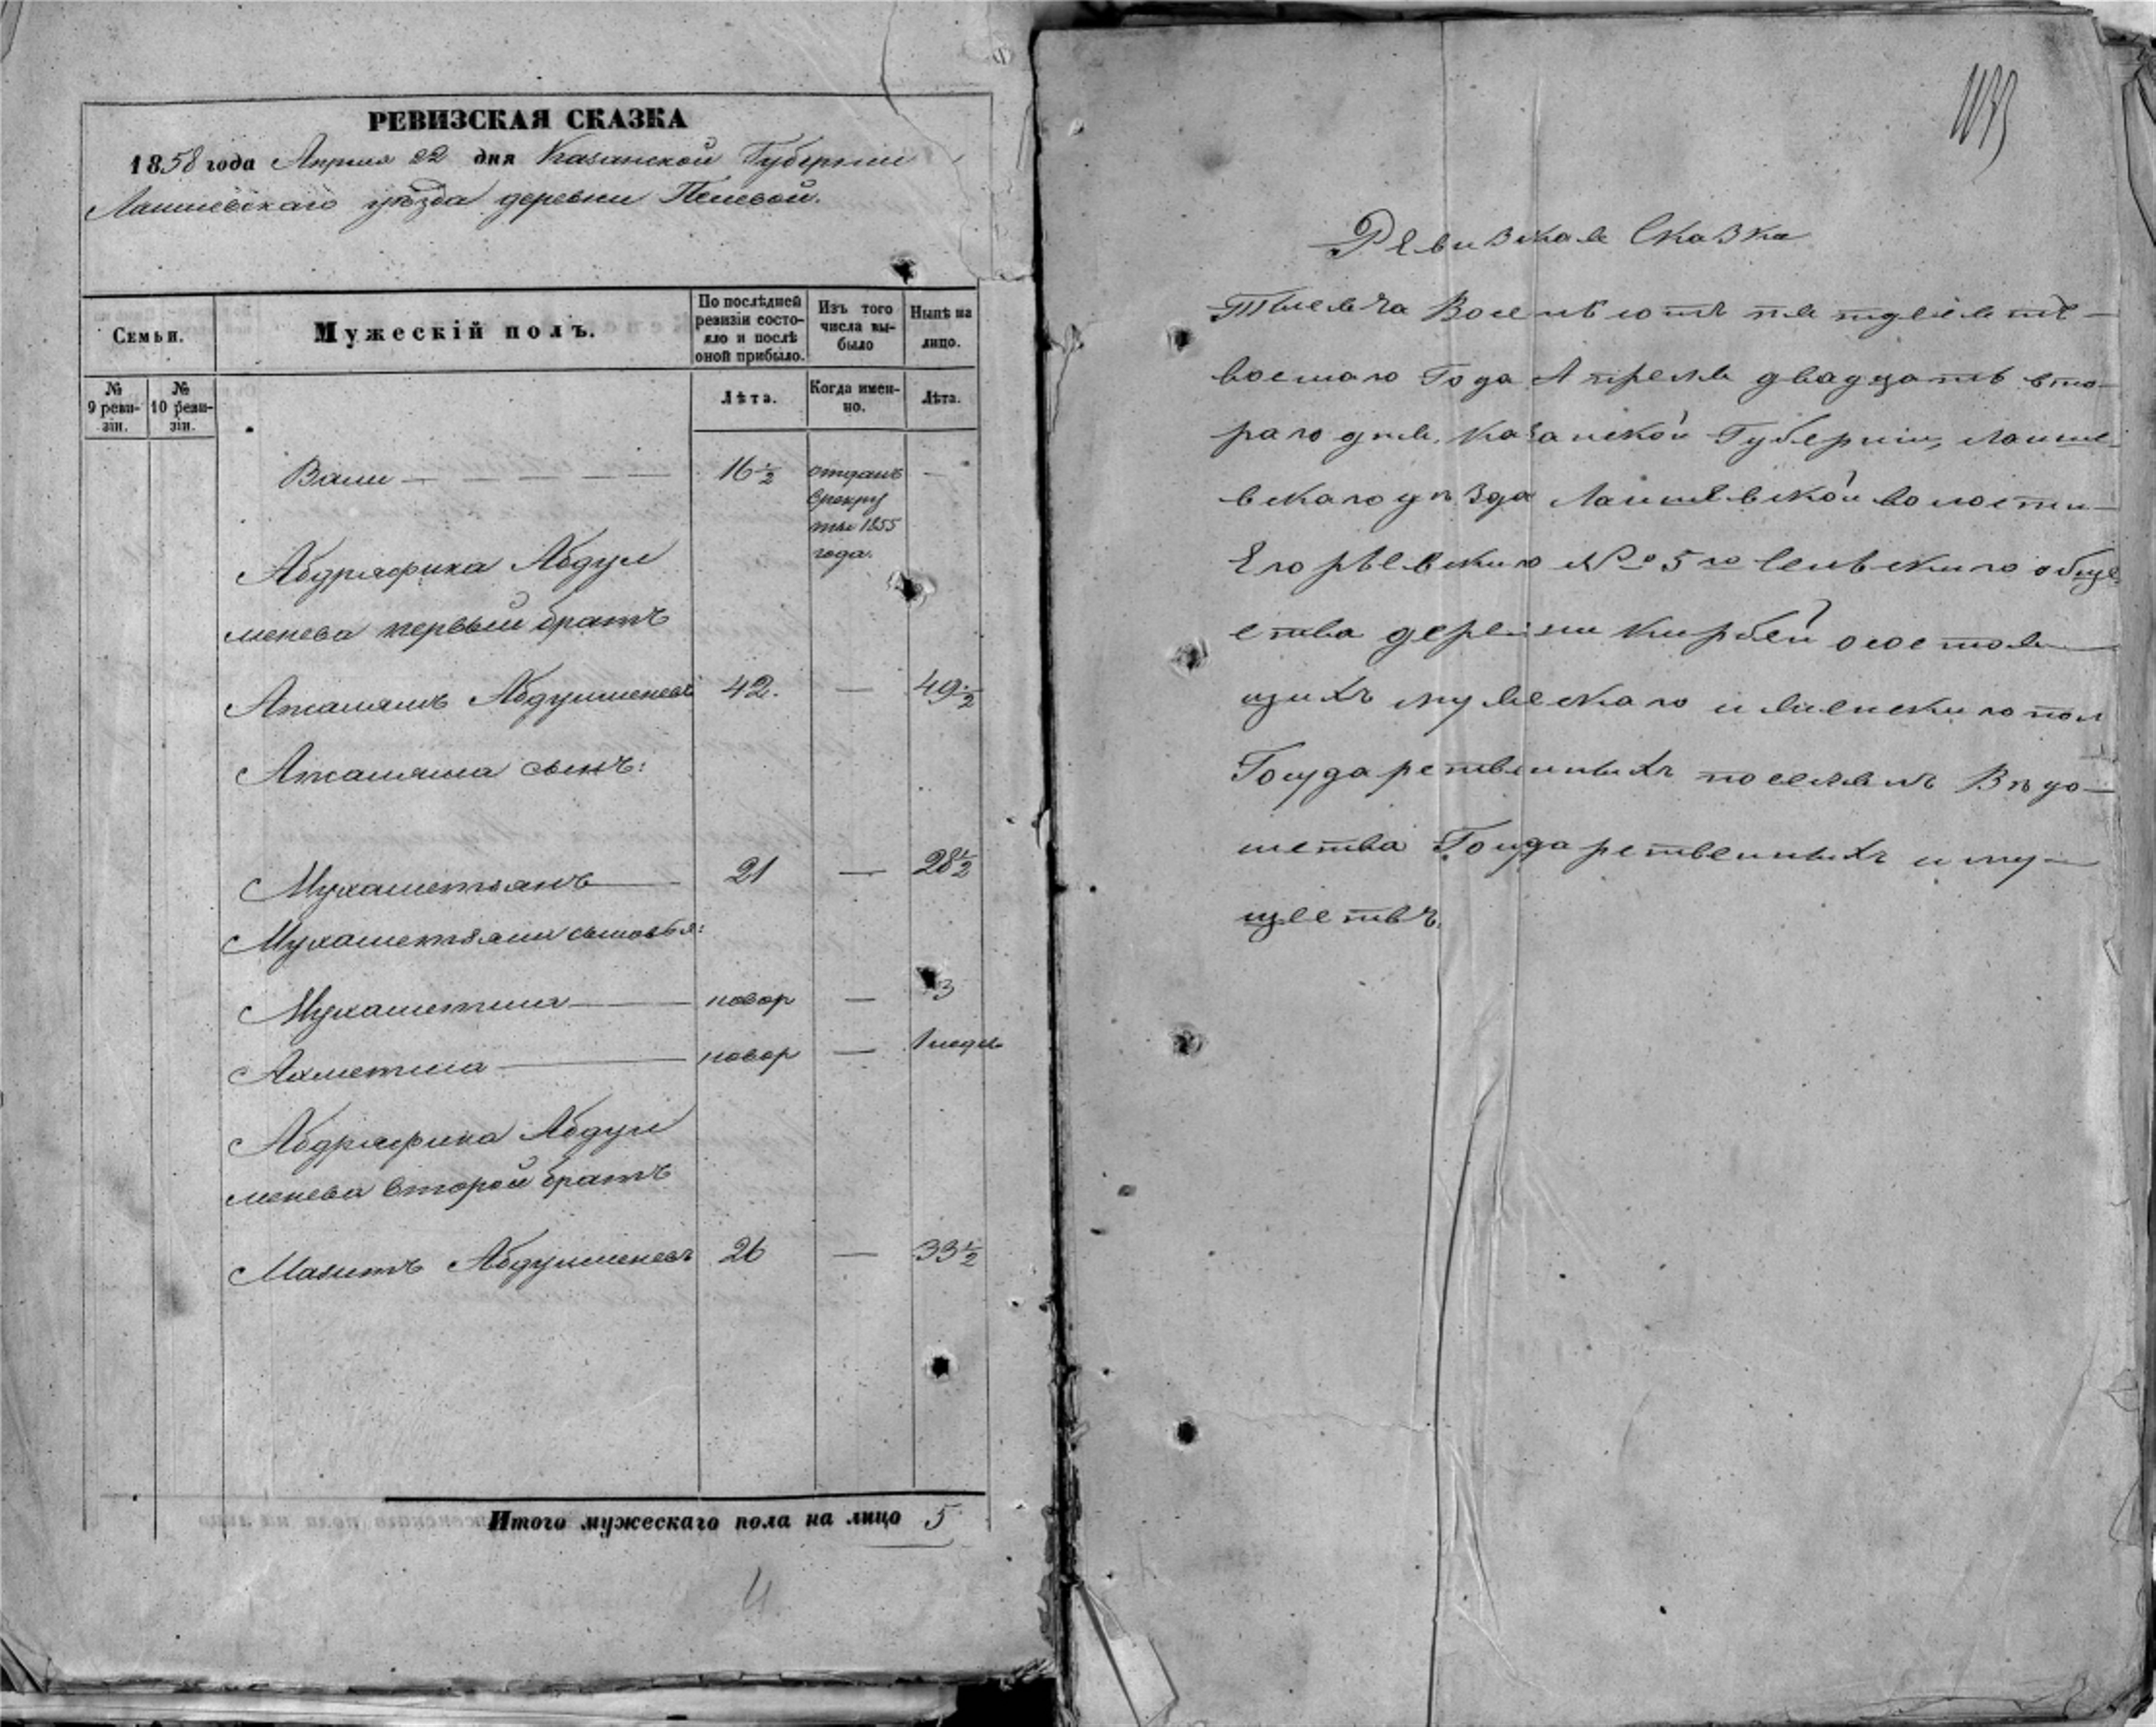 РЕВИЗСКАЯ СКАЗКА
1858 года Апреля 22 дня Казанской Губернии
Лаишевскаго уѣзда деревни
Семьи.
Мужескій полъ.
По послѣдней ревизіи состояло и послѣ оной прибыло.
Изъ того числа выбыло
Нынѣ на лицо.
№ 9 ревизіи.
№ 10 ревизіи.
Лѣта.
Когда именно.
Лѣта.
Вали — — — — — 16 1/2 отданъ —
в рекру
ты 1855
года.
Абдряфика Абдул
менева первый братъ
Абдулменевъ 42. — 49 1/2
сынъ:
Мухаметзянъ — 21 — 28 1/2
Мухаметзяна сыновья:
Мухаметша — новор — 3
Ахметша — новор — 1 недел
Абдряфика Абдул
менева второй братъ
Абдулменевъ 26 — 33 1/2
Итого мужескаго пола на лицо 5
4
Ревизкая Сказка
Тысеча Восемьсотъ пядесятъ
восмаго Года Апреля двадцать вто-
раго дня, Казанской Губерніи, Лаише
вскаго уѣзда Лаишевской волости
Егорьевскаго № 5го Сельскаго обще
ства деревни Кирбей о состоя
щихъ мужескаго и женскаго пол
Государственныхъ поселянъ Вѣдо-
мства Государственныхъ иму-
ществъ.